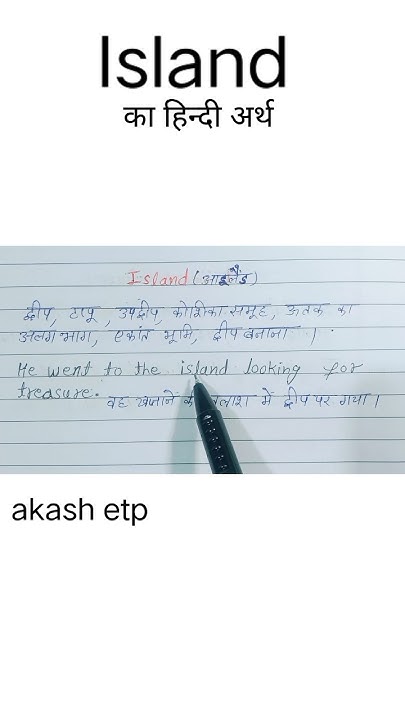 Island
का हिन्दी अर्थ
Island (आइलैंड)
द्वीप, टापू, उपद्वीप, कोशिका समूह, ऊतक का
अलग भाग, एकांत भूमि, द्वीप बनाना ।
He went to the island looking for
treasure.
वह खजाने की तलाश में द्वीप पर गया ।
akash etp